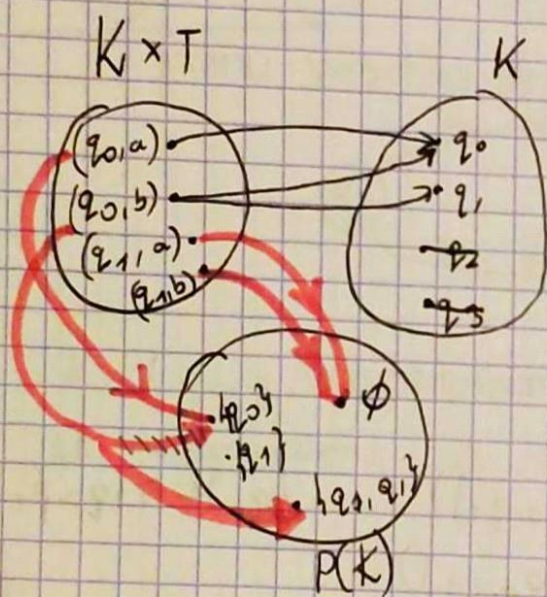 K × T
K
(q0, a)
(q0, b)
(q1, a)
(q1, b)
q0
q1
q2
q3
{q0}
{q1}
∅
{q0, q1}
P(K)